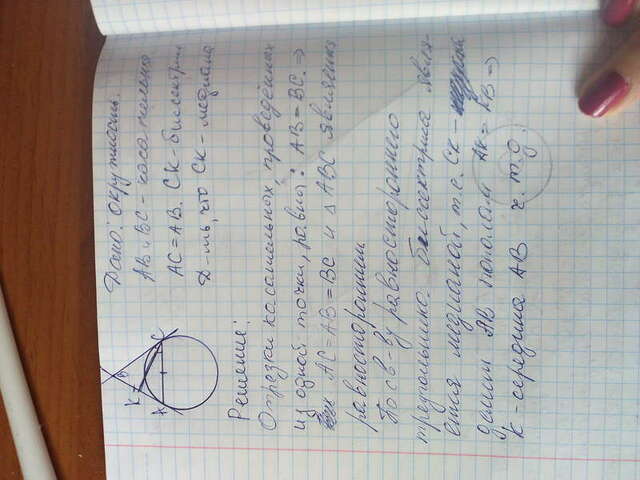 Дано: окружность.
AB и BC - касательные
AC = AB. CK - биссектриса
Д-ть, что CK - медиана
B
K
A
C
Решение:
Отрезки касательных, проведённых
из одной точки, равны: AB = BC ⇒
AC = AB = BC и △ ABC является
равносторонним.
По св-ву равностороннего
треугольника биссектриса явля-
ется медианой, т.е. CK -
делит AB пополам AK = KB ⇒
K - середина AB ч.т.д.